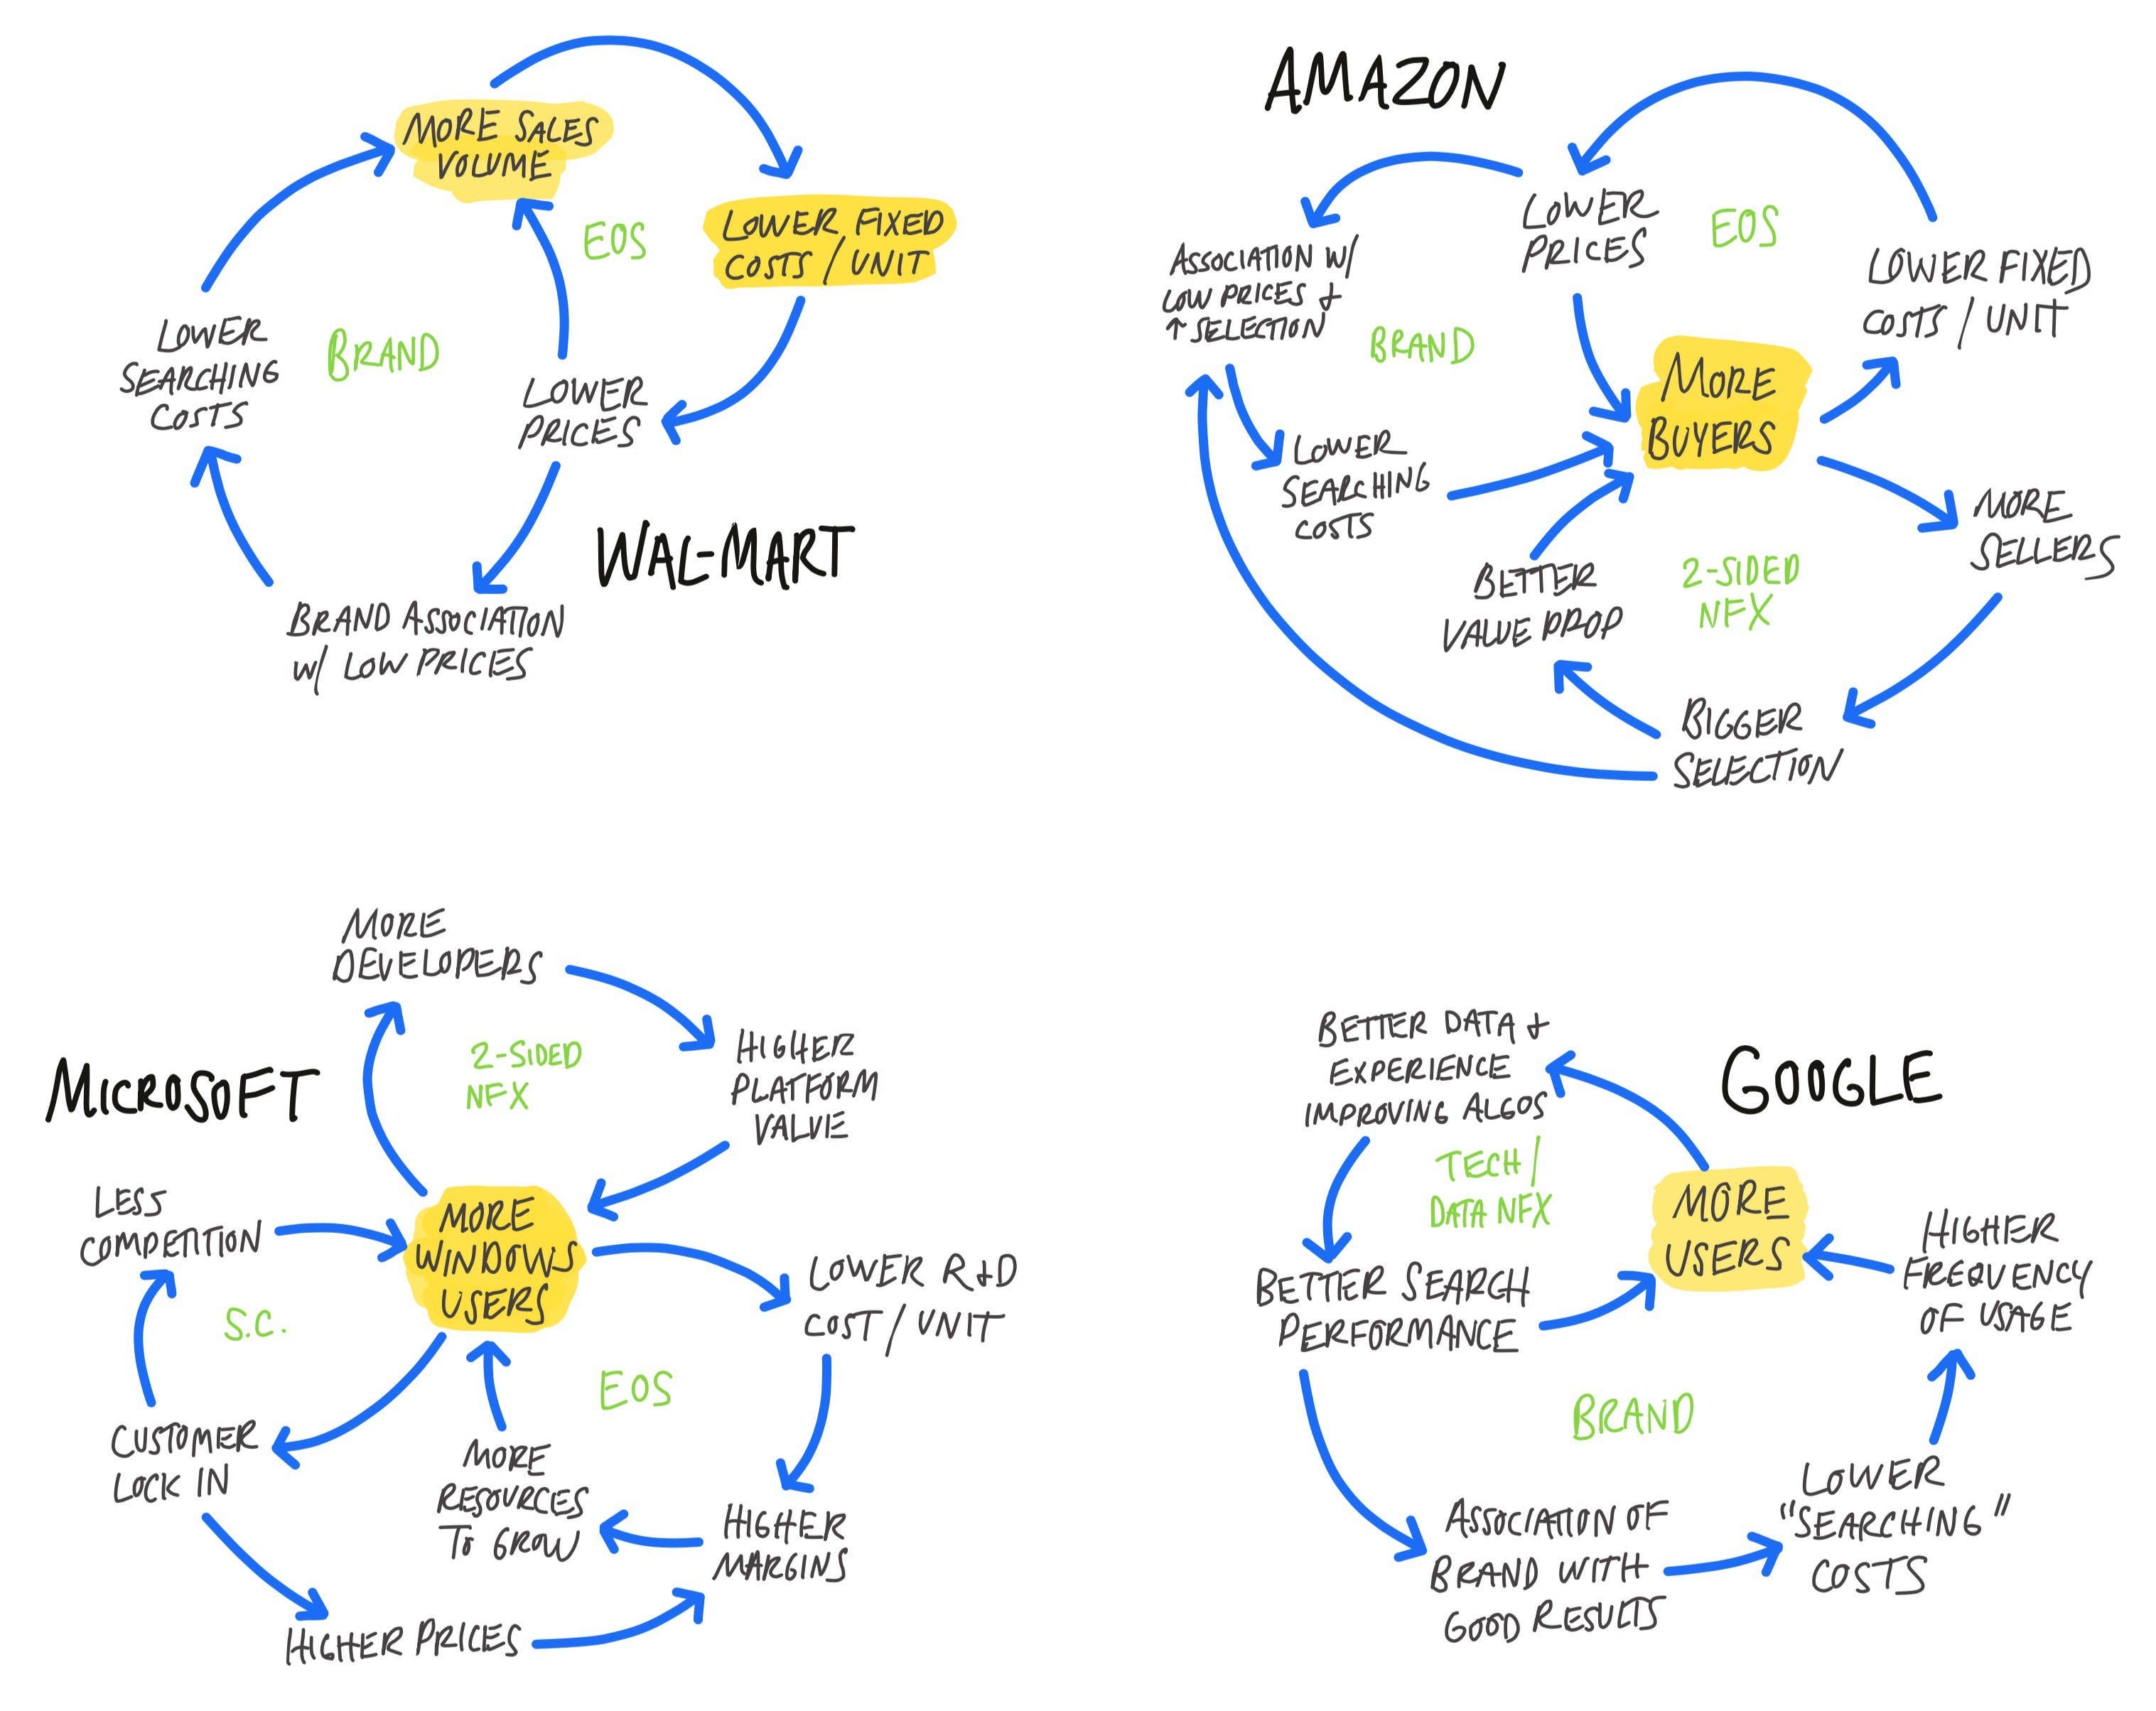 MORE SALES
VOLUME
EOS
LOWER FIXED
COSTS / UNIT
LOWER
SEARCHING
COSTS
BRAND
LOWER
PRICES
WAL-MART
BRAND ASSOCIATION
W/ LOW PRICES
AMAZON
LOWER
PRICES
EOS
ASSOCIATION W/
LOW PRICES +
↑ SELECTION
LOWER FIXED
COSTS / UNIT
BRAND
MORE
BUYERS
LOWER
SEARCHING
COSTS
MORE
SELLERS
BETTER
VALUE PROP
2-SIDED
NFX
BIGGER
SELECTION
MICROSOFT
MORE
DEVELOPERS
2-SIDED
NFX
HIGHER
PLATFORM
VALUE
LESS
COMPETITION
MORE
WINDOWS
USERS
LOWER R+D
COST / UNIT
S.C.
EOS
CUSTOMER
LOCK IN
MORE
RESOURCES
TO GROW
HIGHER
MARGINS
HIGHER PRICES
GOOGLE
BETTER DATA +
EXPERIENCE
IMPROVING ALGOS
TECH /
DATA NFX
MORE
USERS
HIGHER
FREQUENCY
OF USAGE
BETTER SEARCH
PERFORMANCE
BRAND
ASSOCIATION OF
BRAND WITH
GOOD RESULTS
LOWER
"SEARCHING"
COSTS